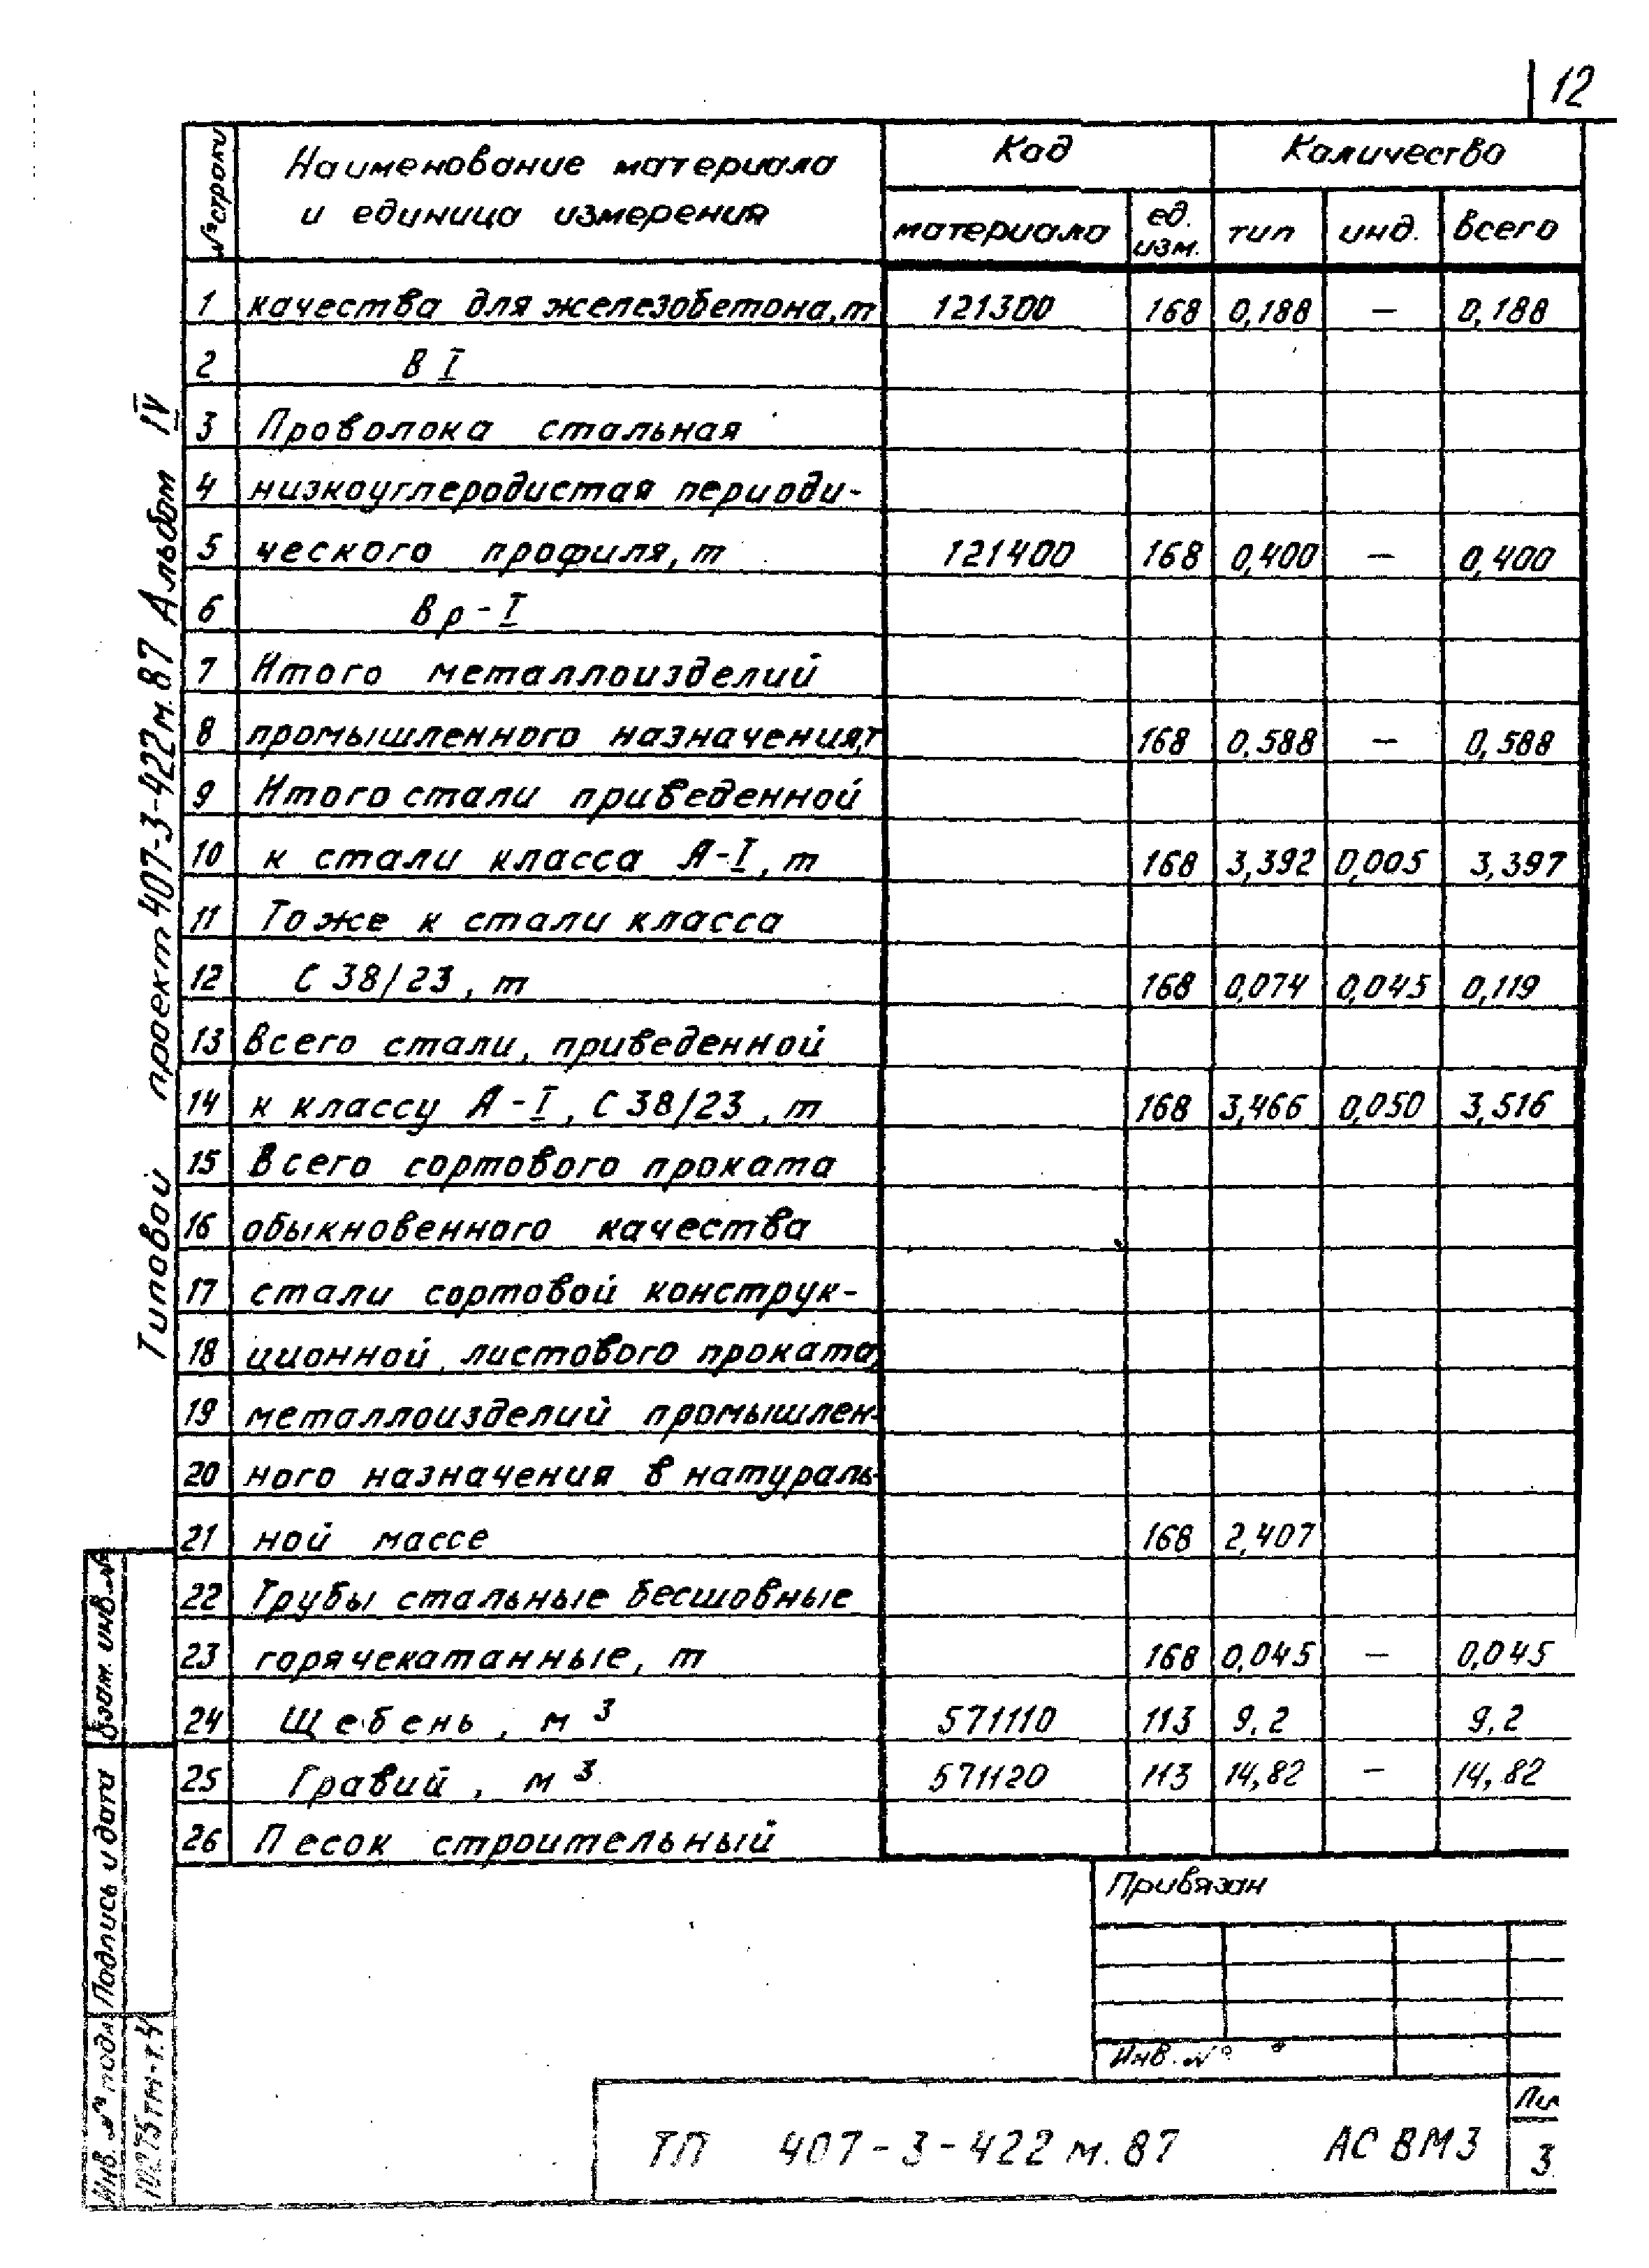 12
№ строки
Наименование материала
и единица измерения
Код
Количество
материала
ед. изм.
тип
инд.
всего
1 качества для железобетона, т 121300 168 0,188 — 0,188
2 В I
3 Проволока стальная
4 низкоуглеродистая периоди-
5 ческого профиля, т 121400 168 0,400 — 0,400
6 Вр-I
7 Итого металлоизделий
8 промышленного назначения, т 168 0.588 — 0,588
9 Итого стали приведенной
10 к стали класса А-I, т 168 3,392 0,005 3,397
11 То же к стали класса
12 С 38/23, т 168 0,074 0,045 0,119
13 Всего стали, приведенной
14 к классу А-I, С 38/23, т 168 3,466 0,050 3,516
15 Всего сортового проката
16 обыкновенного качества
17 стали сортовой конструк-
18 ционной, листового проката,
19 металлоизделий промышлен-
20 ного назначения в натураль-
21 ной массе 168 2,407
22 Трубы стальные бесшовные
23 горячекатанные, т 168 0,045 — 0,045
24 Щебень, м3 571110 113 9,2 9,2
25 Гравий, м3 571120 113 14,82 — 14,82
26 Песок строительный
Типовой проект 407-3-422м.87 Альбом IV
Взам. инв.№
Подпись и дата
Инв. № подл
10275тм-т.4
Привязан
Инв. №
ТП 407-3-422м.87 АС ВМ3
3